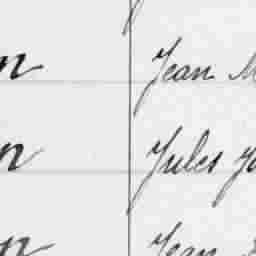 n Jean M
n Jules Jo
n Jean